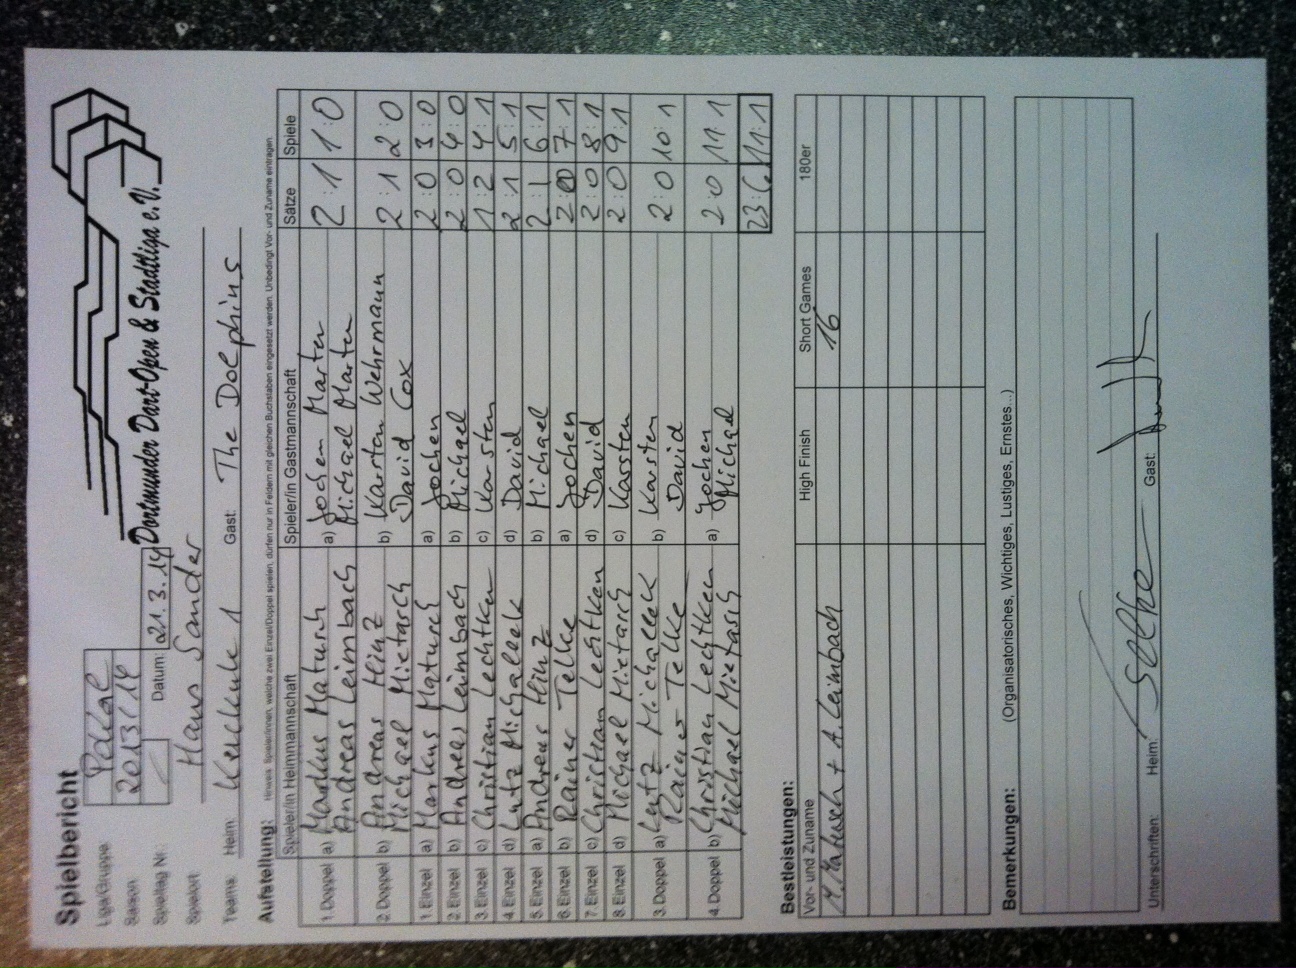 Spielbericht
Liga/Gruppe Pokal
Saison 2013/14
Spieltag Nr: Datum: 21.3.14
Dortmunder Dart-Open & Stadtliga e.V.
Spielort Haus Sander
Teams: Heim: Kuckuk 1 Gast: The Dolphins
Aufstellung: Hinweis: Spieler/innen, welche zwei Einzel/Doppel spielen, dürfen nur in Feldern mit gleichen Buchstaben eingesetzt werden. Unbedingt Vor- und Zuname eintragen.
Spieler/in Heimmannschaft Spieler/in Gastmannschaft Sätze Spiele
1.Doppel a) Markus Matusch a) Jochen Marten 2:1 1:0
Andreas Leimbach Michael Marten
2.Doppel b) Andreas Hinz b) Karsten Wehrmann 2:1 2:0
Michael Mietasch David Cox
1.Einzel a) Markus Matusch a) Jochen 2:0 3:0
2.Einzel b) Andreas Leimbach b) Michael 2:0 4:0
3.Einzel c) Christian Lechtken c) Karsten 1:2 4:1
4.Einzel d) Lutz Michaleek d) David 2:1 5:1
5.Einzel a) Andreas Hinz b) Michael 2:1 6:1
6.Einzel b) Rainer Telke a) Jochen 2:0 7:1
7.Einzel c) Christian Lechtken d) David 2:0 8:1
8.Einzel d) Michael Mietasch c) Karsten 2:0 9:1
3.Doppel a) Lutz Michaleek b) Karsten 2:0 10:1
Rainer Telke David
4.Doppel b) Christian Lechtken a) Jochen 2:0 11:1
Michael Mietasch Michael
23:6 11:1
Bestleistungen:
Vor- und Zuname High Finish Short Games 180er
M. Matusch + A. Leimbach 16
Bemerkungen: (Organisatorisches, Wichtiges, Lustiges, Ernstes...)
Unterschriften: Heim: Gast: